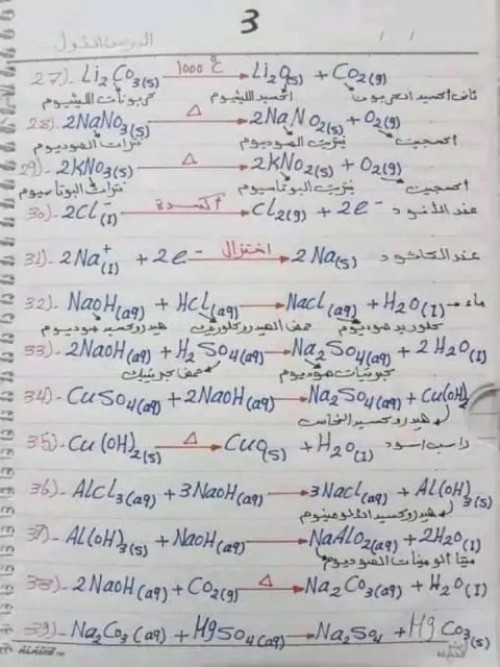 3
الدرس الأول
/ /
27)- Li₂CO₃(s) 1000°C → Li₂O(s) + CO₂(g)
كربونات الليثيوم أكسيد الليثيوم ثاني أكسيد الكربون
28)- 2NaNO₃(s) Δ → 2NaNO₂(s) + O₂(g)
نترات الصوديوم نيتريت الصوديوم أكسجين
29)- 2KNO₃(s) Δ → 2KNO₂(s) + O₂(g)
نترات البوتاسيوم نيتريت البوتاسيوم أكسجين
30)- 2Cl⁻(l) أكسدة → Cl₂(g) + 2e⁻ عند الأنود
31)- 2Na⁺(l) + 2e⁻ اختزال → 2Na(s) عند الكاثود
32)- NaOH(aq) + HCl(aq) → NaCl(aq) + H₂O(l) → ماء
هيدروكسيد صوديوم حمض الهيدروكلوريك كلوريد صوديوم
33)- 2NaOH(aq) + H₂SO₄(aq) → Na₂SO₄(aq) + 2H₂O(l)
حمض كبريتيك كبريتات صوديوم
34)- CuSO₄(aq) + 2NaOH(aq) → Na₂SO₄(aq) + Cu(OH)₂
هيدروكسيد النحاس
35)- Cu(OH)₂(s) Δ → CuO(s) + H₂O(l) راسب أسود
36)- AlCl₃(aq) + 3NaOH(aq) → 3NaCl(aq) + Al(OH)₃(s)
هيدروكسيد الألومنيوم
37)- Al(OH)₃(s) + NaOH(aq) → NaAlO₂(aq) + 2H₂O(l)
ميتا ألومينات الصوديوم
38)- 2NaOH(aq) + CO₂(g) Δ → Na₂CO₃(aq) + H₂O(l)
39)- Na₂CO₃(aq) + MgSO₄(aq) → Na₂SO₄ + MgCO₃(s)